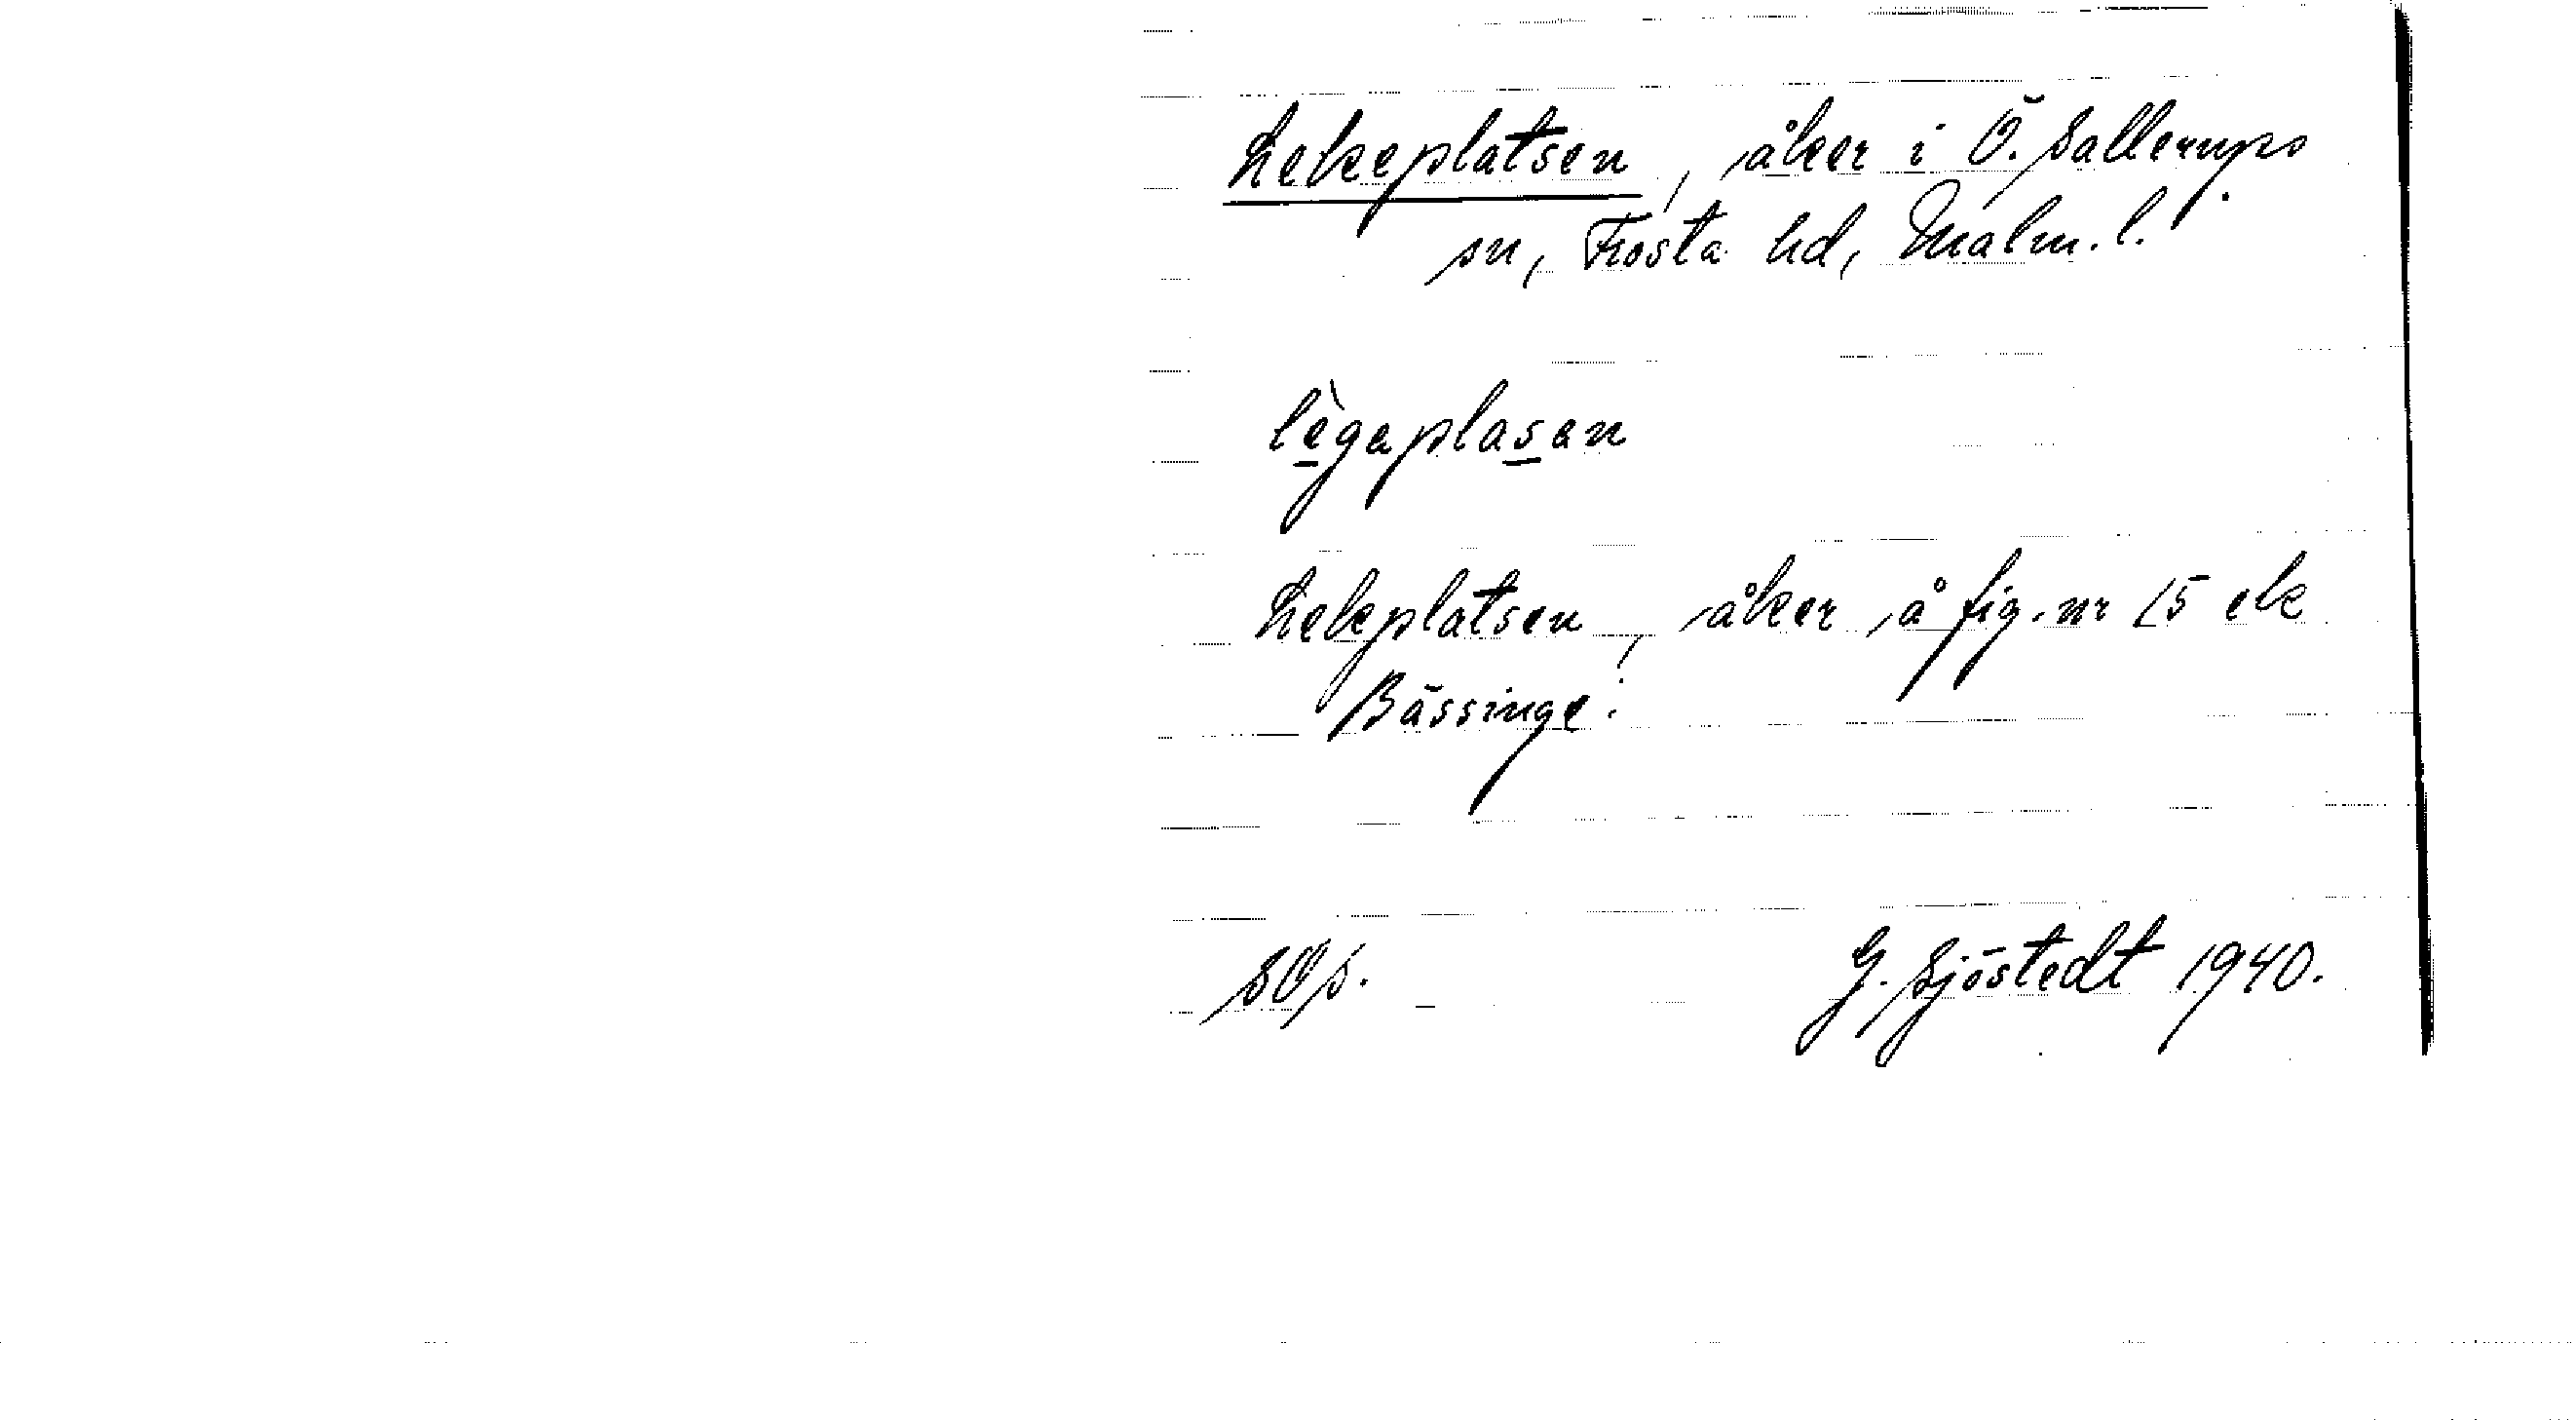 Lekeplatsen, åker i Ö. Sallerups
sn, Frosta hd, Malm. l.
lègaplasan
Lekeplatsen, åker å fig. nr 15 ek
Bässinge.
SOS.
G. Sjöstedt 1940.